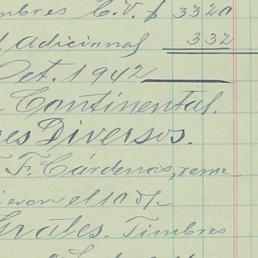 mbres C.V. $ 3320
Adicional 332
Oct. 1942
Continental.
res Diversos.
F. Cárdenas, reme
ieron el 10 %
Grales. Timbres